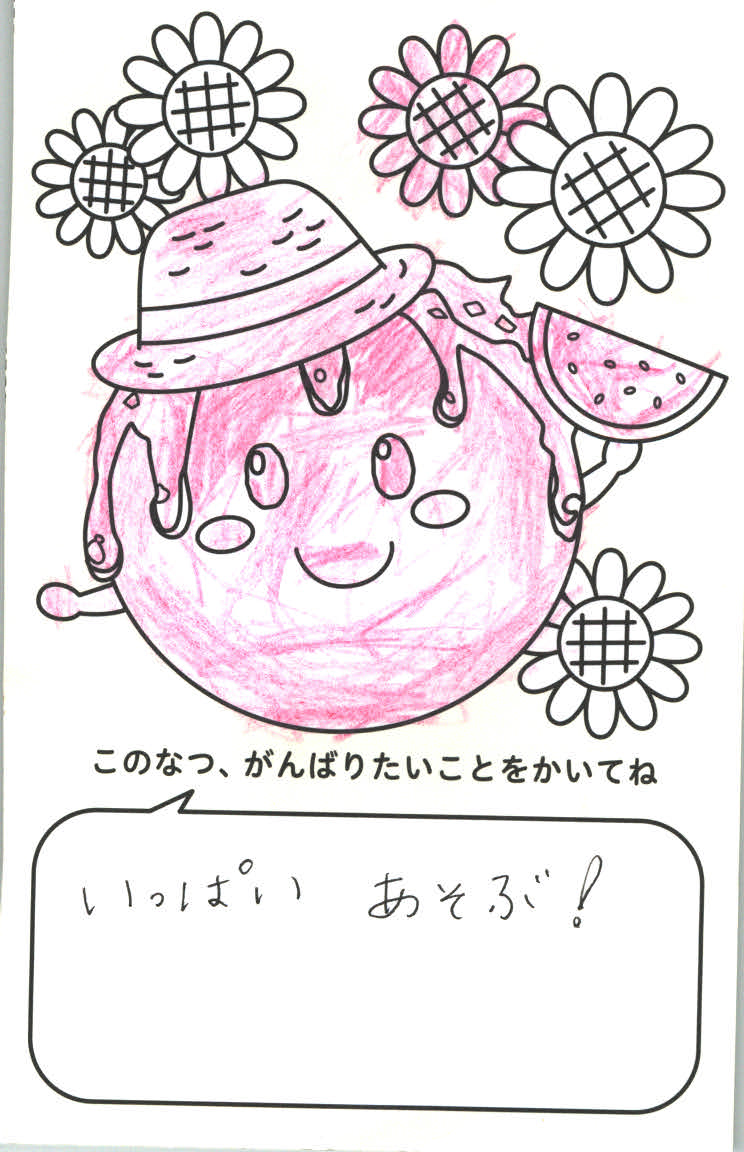 このなつ、がんばりたいことをかいてね
いっぱい あそぶ!